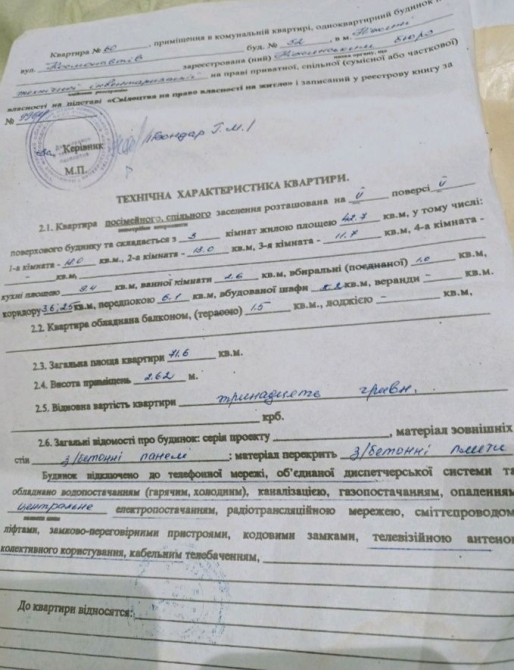 Квартира № 60, приміщення в комунальній квартирі, одноквартирний будинок
вул. Космонавтів буд. № 52, в м.
зареєстрована (ний) бюро
технічної інвентаризації на праві приватної, спільної (сумісної або часткової)
власності на підставі «Свідоцтва на право власності на житло» і записаний у реєстрову книгу за
№
Керівник Бондар Г.М.
М.П.
ТЕХНІЧНА ХАРАКТЕРИСТИКА КВАРТИРИ.
2.1. Квартира посімейного, спільного заселення розташована на поверсі
поверхового будинку та складається з 3 кімнат жилою площею 42.7 кв.м, у тому числі:
1-а кімната - кв.м., 2-а кімната - 13.0 кв.м, 3-я кімната - 11.7 кв.м, 4-а кімната -
- кв.м,
кухні площею кв.м, ванної кімнати 2.6 кв.м, вбиральні (поєднаної) 1.0 кв.м,
коридору кв.м, передпокою 6.1 кв.м, вбудованої шафи кв.м, веранди - кв.м.
2.2. Квартира обладнана балконом, (терасою) 1.5 кв.м., лоджією - кв.м,
2.3. Загальна площа квартири 71.6 кв.м.
2.4. Висота приміщень 2.62 м.
2.5. Відновна вартість квартири тринадцять гривн.
крб.
2.6. Загальні відомості про будинок: серія проекту , матеріал зовнішніх
стін з/бетонні панелі ; матеріал перекрить з/бетонні плити
Будинок підключено до телефонної мережі, об'єднаної диспетчерської системи та
обладнано водопостачанням (гарячим, холодним), каналізацією, газопостачанням, опаленням
центральне електропостачанням, радіотрансляційною мережею, сміттєпроводом
ліфтами, замково-переговорними пристроями, кодовими замками, телевізійною антеною
колективного користування, кабельним телебаченням,
До квартири відносяться: